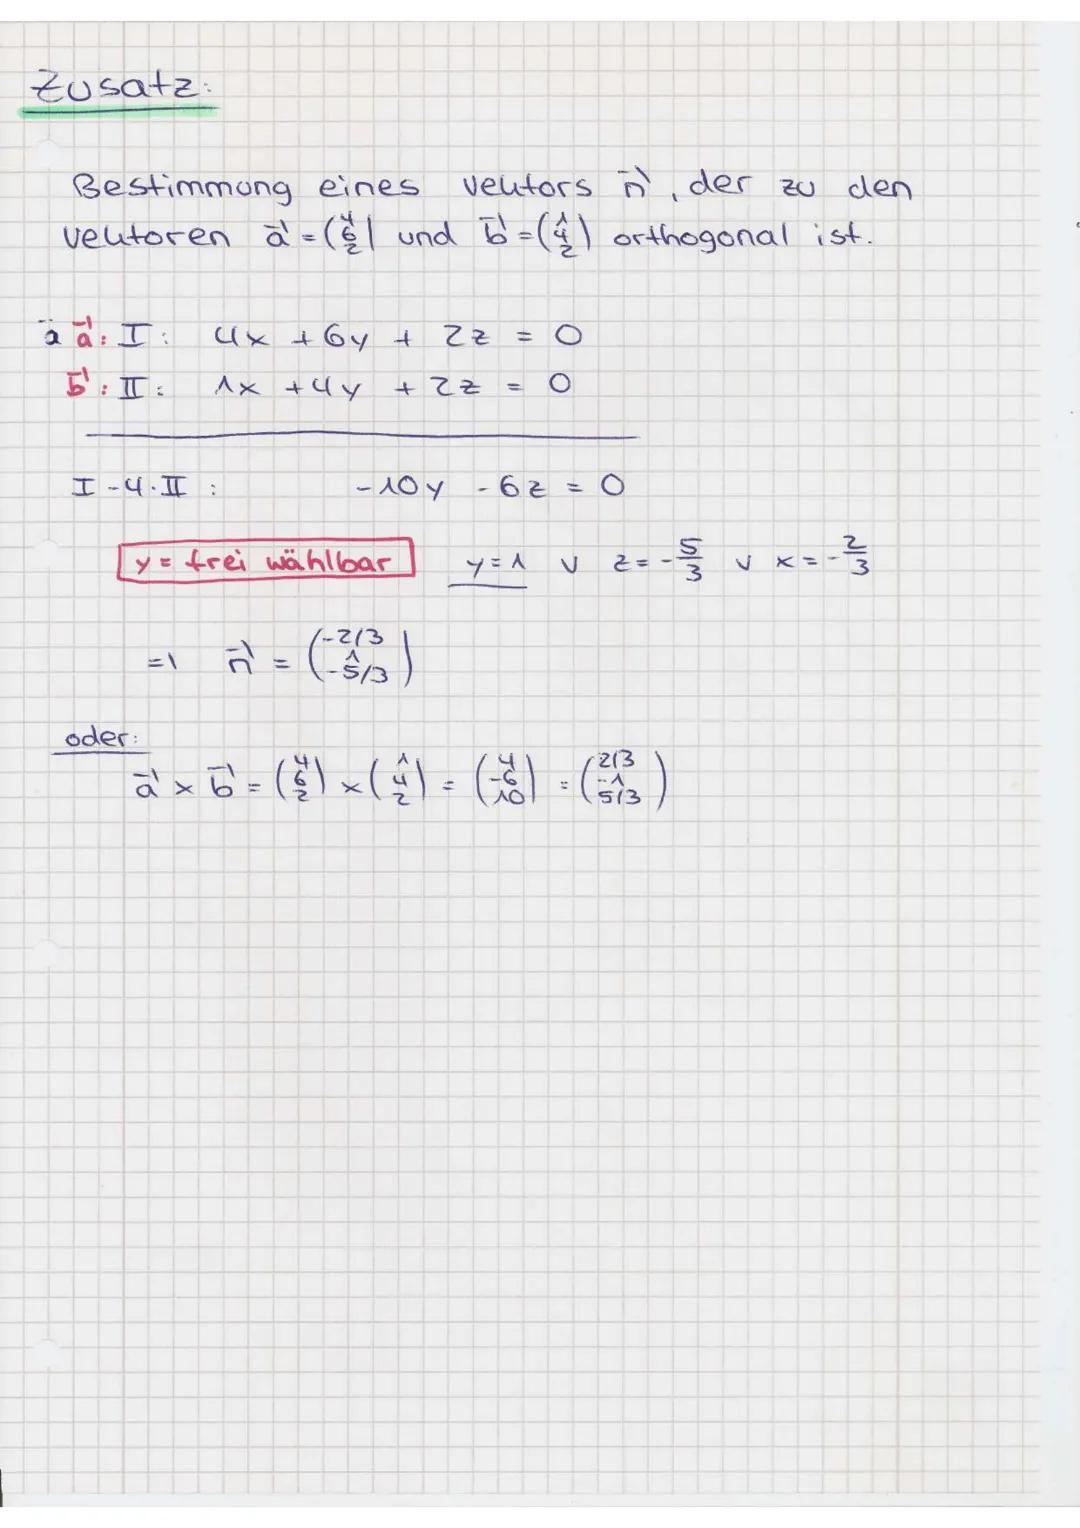 Zusatz:
Bestimmung eines Vektors n⃗, der zu den
Vektoren a⃗ = (4 6 2) und b⃗ = (1 4 2) orthogonal ist.
a⃗: I: 4x + 6y + 2z = 0
b⃗: II: 1x + 4y + 2z = 0
I - 4·II: -10y - 6z = 0
y = frei wählbar y = 1 ∨ z = -5/3 ∨ x = -2/3
=> n⃗ = (-2/3 1 -5/3)
oder:
a⃗ × b⃗ = (4 6 2) × (1 4 2) = (4 -6 10) = (2/3 -1 5/3)